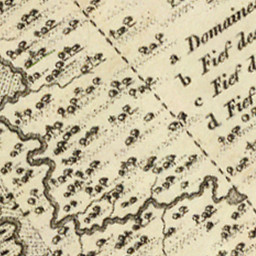 a Domaine
b Fief de
c Fief d
d Fief